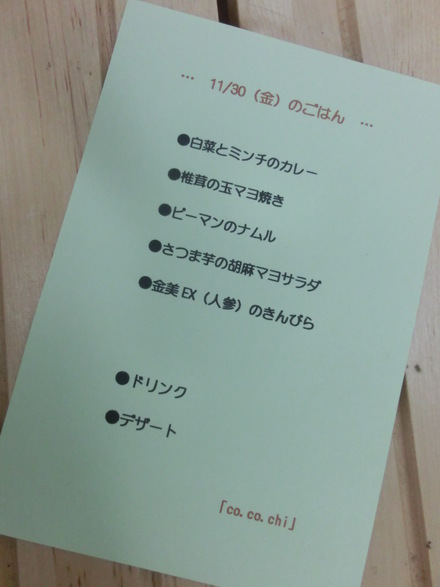 … 11/30（金）のごはん …
●白菜とミンチのカレー
●椎茸の玉マヨ焼き
●ピーマンのナムル
●さつま芋の胡麻マヨサラダ
●金美EX（人参）のきんぴら
●ドリンク
●デザート
「co.co.chi」